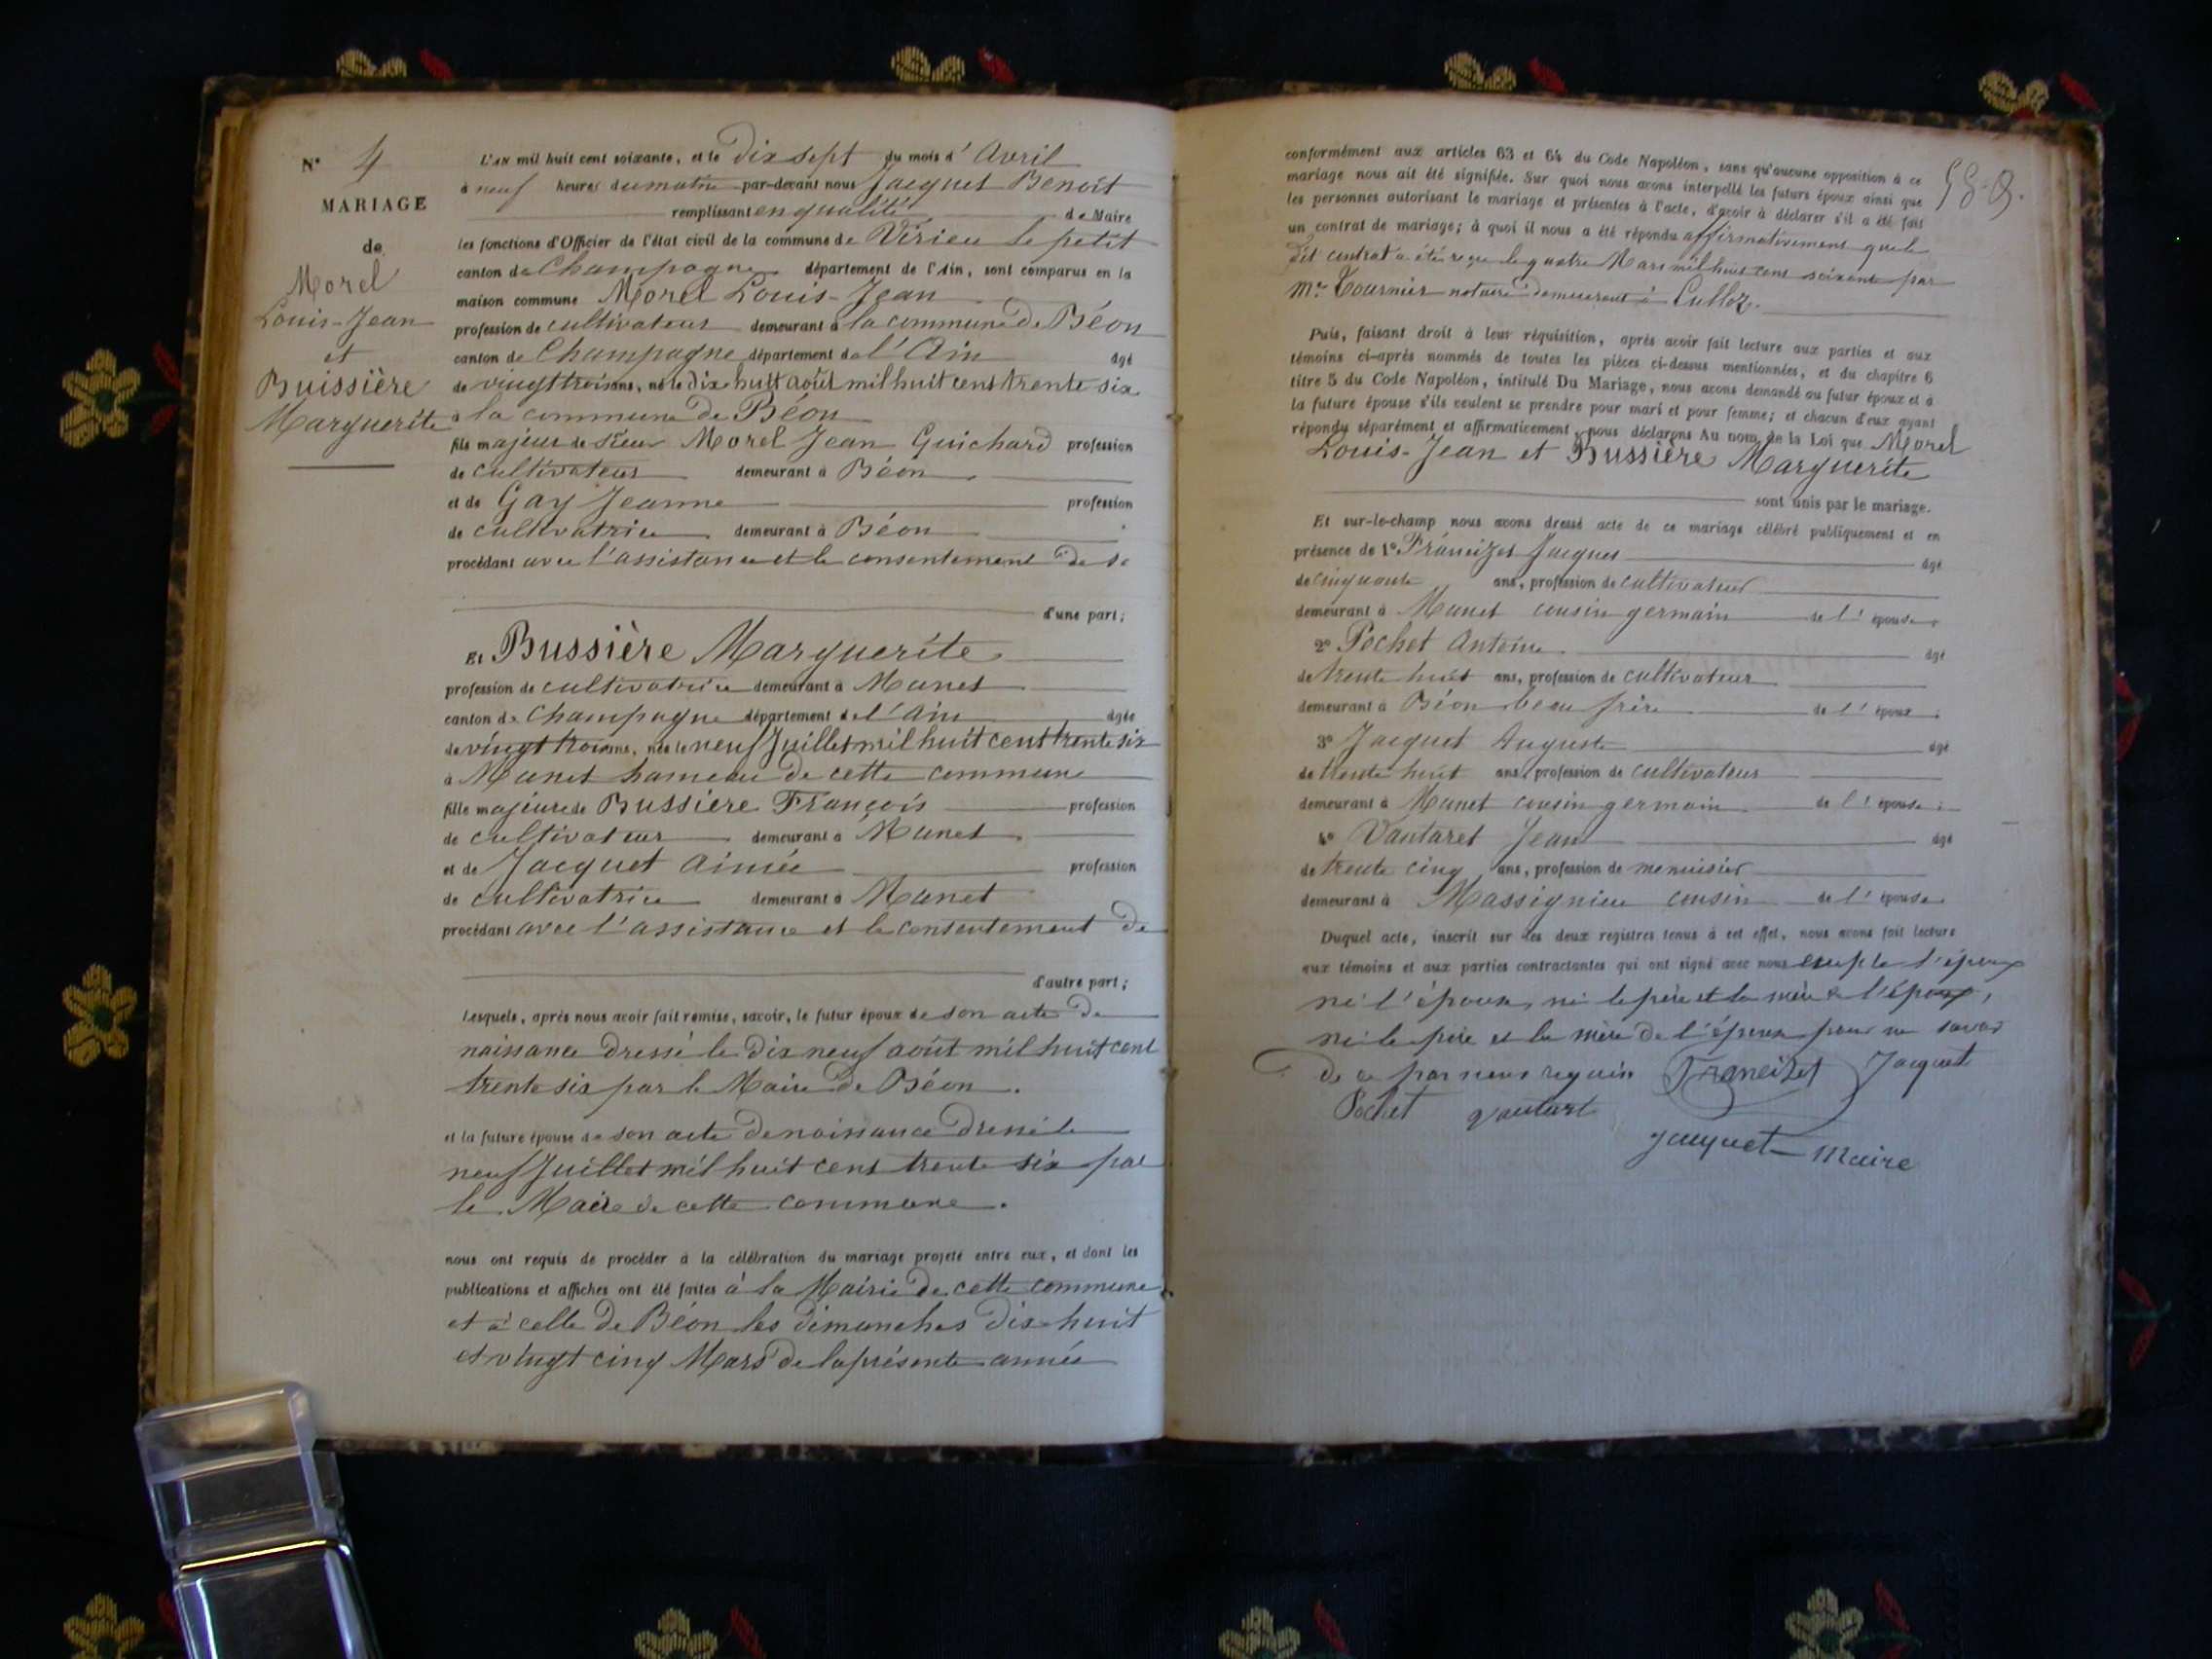 N° 4
MARIAGE
de
Morel
Louis-Jean
et
Buissière
Marguerite
L'AN mil huit cent soixante, et le Dix sept du mois d'Avril
à neuf heures du matin par-devant nous Jacquet Benoit
remplissant en qualité de Maire
les fonctions d'Officier de l'état civil de la commune de Virieu le petit
canton de Champagne département de l'Ain, sont comparus en la
maison commune Morel Louis-Jean
profession de cultivateur demeurant à la commune de Béon
canton de Champagne département de l'Ain âgé
de vingt trois ans, né le dix huit août mil huit cent trente six
à la commune de Béon
fils majeur de Morel Jean Guichard profession
de cultivateur demeurant à Béon
et de Gay Jeanne profession
de cultivatrice demeurant à Béon
procédant avec l'assistance et le consentement de
d'une part;
Et Bussière Marguerite
profession de cultivatrice demeurant à Munet
canton de Champagne département de l'Ain âgée
de vingt trois ans, née le neuf Juillet mil huit cent trente six
à Munet hameau de cette commune
fille majeure de Bussière François profession
de cultivateur demeurant à Munet
et de Jacquet Aimée profession
de cultivatrice demeurant à Munet
procédant avec l'assistance et le consentement de
d'autre part;
Lesquels, après nous avoir fait remise, savoir, le futur époux de son acte de
naissance dressé le dix neuf août mil huit cent
trente six par le Maire de Béon.
et la future épouse de son acte de naissance dressé le
neuf Juillet mil huit cent trente six par
le Maire de cette commune.
nous ont requis de procéder à la célébration du mariage projeté entre eux, et dont les
publications et affiches ont été faites à la Mairie de cette commune
et à celle de Béon les dimanches dix huit
et vingt cinq Mars de la présente année
conformément aux articles 63 et 64 du Code Napoléon, sans qu'aucune opposition à ce
mariage nous ait été signifiée. Sur quoi nous avons interpellé les futurs époux ainsi que
les personnes autorisant le mariage et présentes à l'acte, d'avoir à déclarer s'il a été fait
un contrat de mariage; à quoi il nous a été répondu affirmativement que le
dit contrat a été reçu le quatre Mars mil huit cent soixante par
Me Tournier notaire demeurant à Culloz.
Puis, faisant droit à leur réquisition, après avoir fait lecture aux parties et aux
témoins ci-après nommés de toutes les pièces ci-dessus mentionnées, et du chapitre 6
titre 5 du Code Napoléon, intitulé Du Mariage, nous avons demandé au futur époux et à
la future épouse s'ils veulent se prendre pour mari et pour femme; et chacun d'eux ayant
répondu séparément et affirmativement nous déclarons Au nom de la Loi que Morel
Louis-Jean et Bussière Marguerite
sont unis par le mariage.
Et sur-le-champ nous avons dressé acte de ce mariage célébré publiquement et en
présence de 1° Franciset Jacques âgé
de cinquante ans, profession de cultivateur
demeurant à Munet cousin germain de l'épouse
2° Pochet Antoine âgé
de trente huit ans, profession de cultivateur
demeurant à Béon beau frère de l'époux;
3° Jacquet Auguste âgé
de trente huit ans, profession de cultivateur
demeurant à Munet cousin germain de l'épouse;
4° Vautaret Jean âgé
de trente cinq ans, profession de menuisier
demeurant à Massignieu cousin de l'épouse
Duquel acte, inscrit sur les deux registres tenus à cet effet, nous avons fait lecture
aux témoins et aux parties contractantes qui ont signé avec nous excepté l'époux
ni l'épouse, ni le père et la mère de l'époux,
ni le père et la mère de l'épouse pour ne savoir
de ce par nous requis Franciset Jacquet
Pochet Vautaret
Jacquet Maire